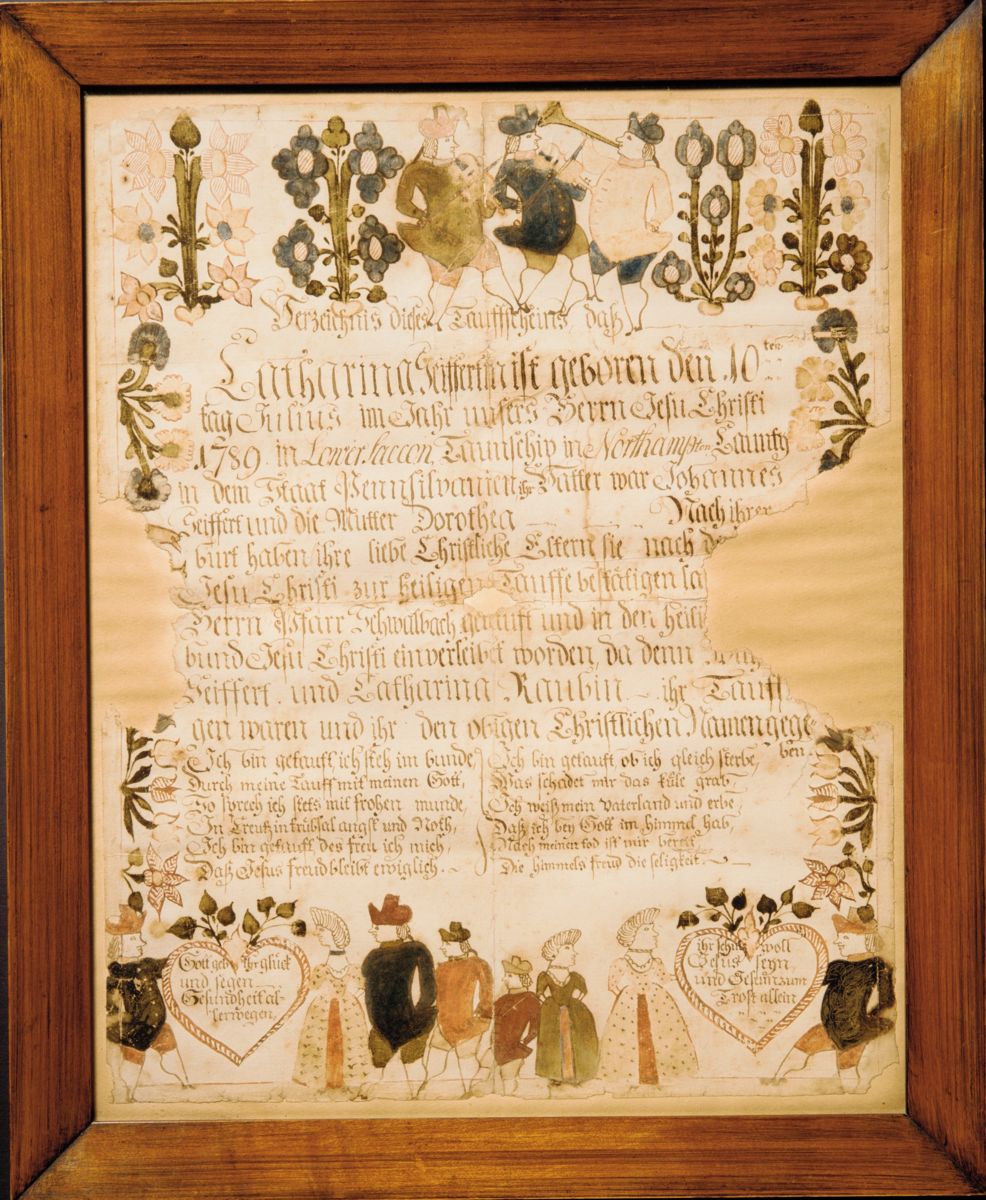 Verzeichnis dieses Tauffscheins, daß
Catharina Seiffertin ist geboren den 10ten
tag Julius im Jahr unsers Herrn Jesu Christi
1789. in Lower Saccon Taunschip in Northampton Caunty
in dem Staat Pennsilvanien, ihr Vatter war Johannes
Seiffert und die Mutter Dorothea Nach ihrer
burt haben ihre liebe Christliche Eltern sie nach
Jesu Christi zur heiligen Tauffe bestätigen
Herrn Pfarr Schwalbach getauft und in den
bund Jesu Christi einverleibet worden, da denn
Seiffert und Catharina Raubin ihr Tauff
gen waren und ihr den obigen Christlichen Namen gege-
ben
Ich bin getauft ich steh im bunde,
Durch meine Tauff mit meinen Gott,
So sprech ich stets mit frohen munde,
In Creutz in trübsal angst und Noth,
Ich bin getauft des freu ich mich,
Daß Jesus freud bleibt ewiglich.
Ich bin getauft ob ich gleich sterbe,
Was schadet mir das küle grab,
Ich weiß mein vaterland und erbe,
Daß ich bey Gott im himmel hab,
Nach meinen tod ist mir bereit
Die himmels freud die seligkeit.
Gott geb Ihr glück
und segen
Gesundheit al-
lerwegen,
ihr schutz woll
Jesus seyn,
und Gestirn zum
Trost allein